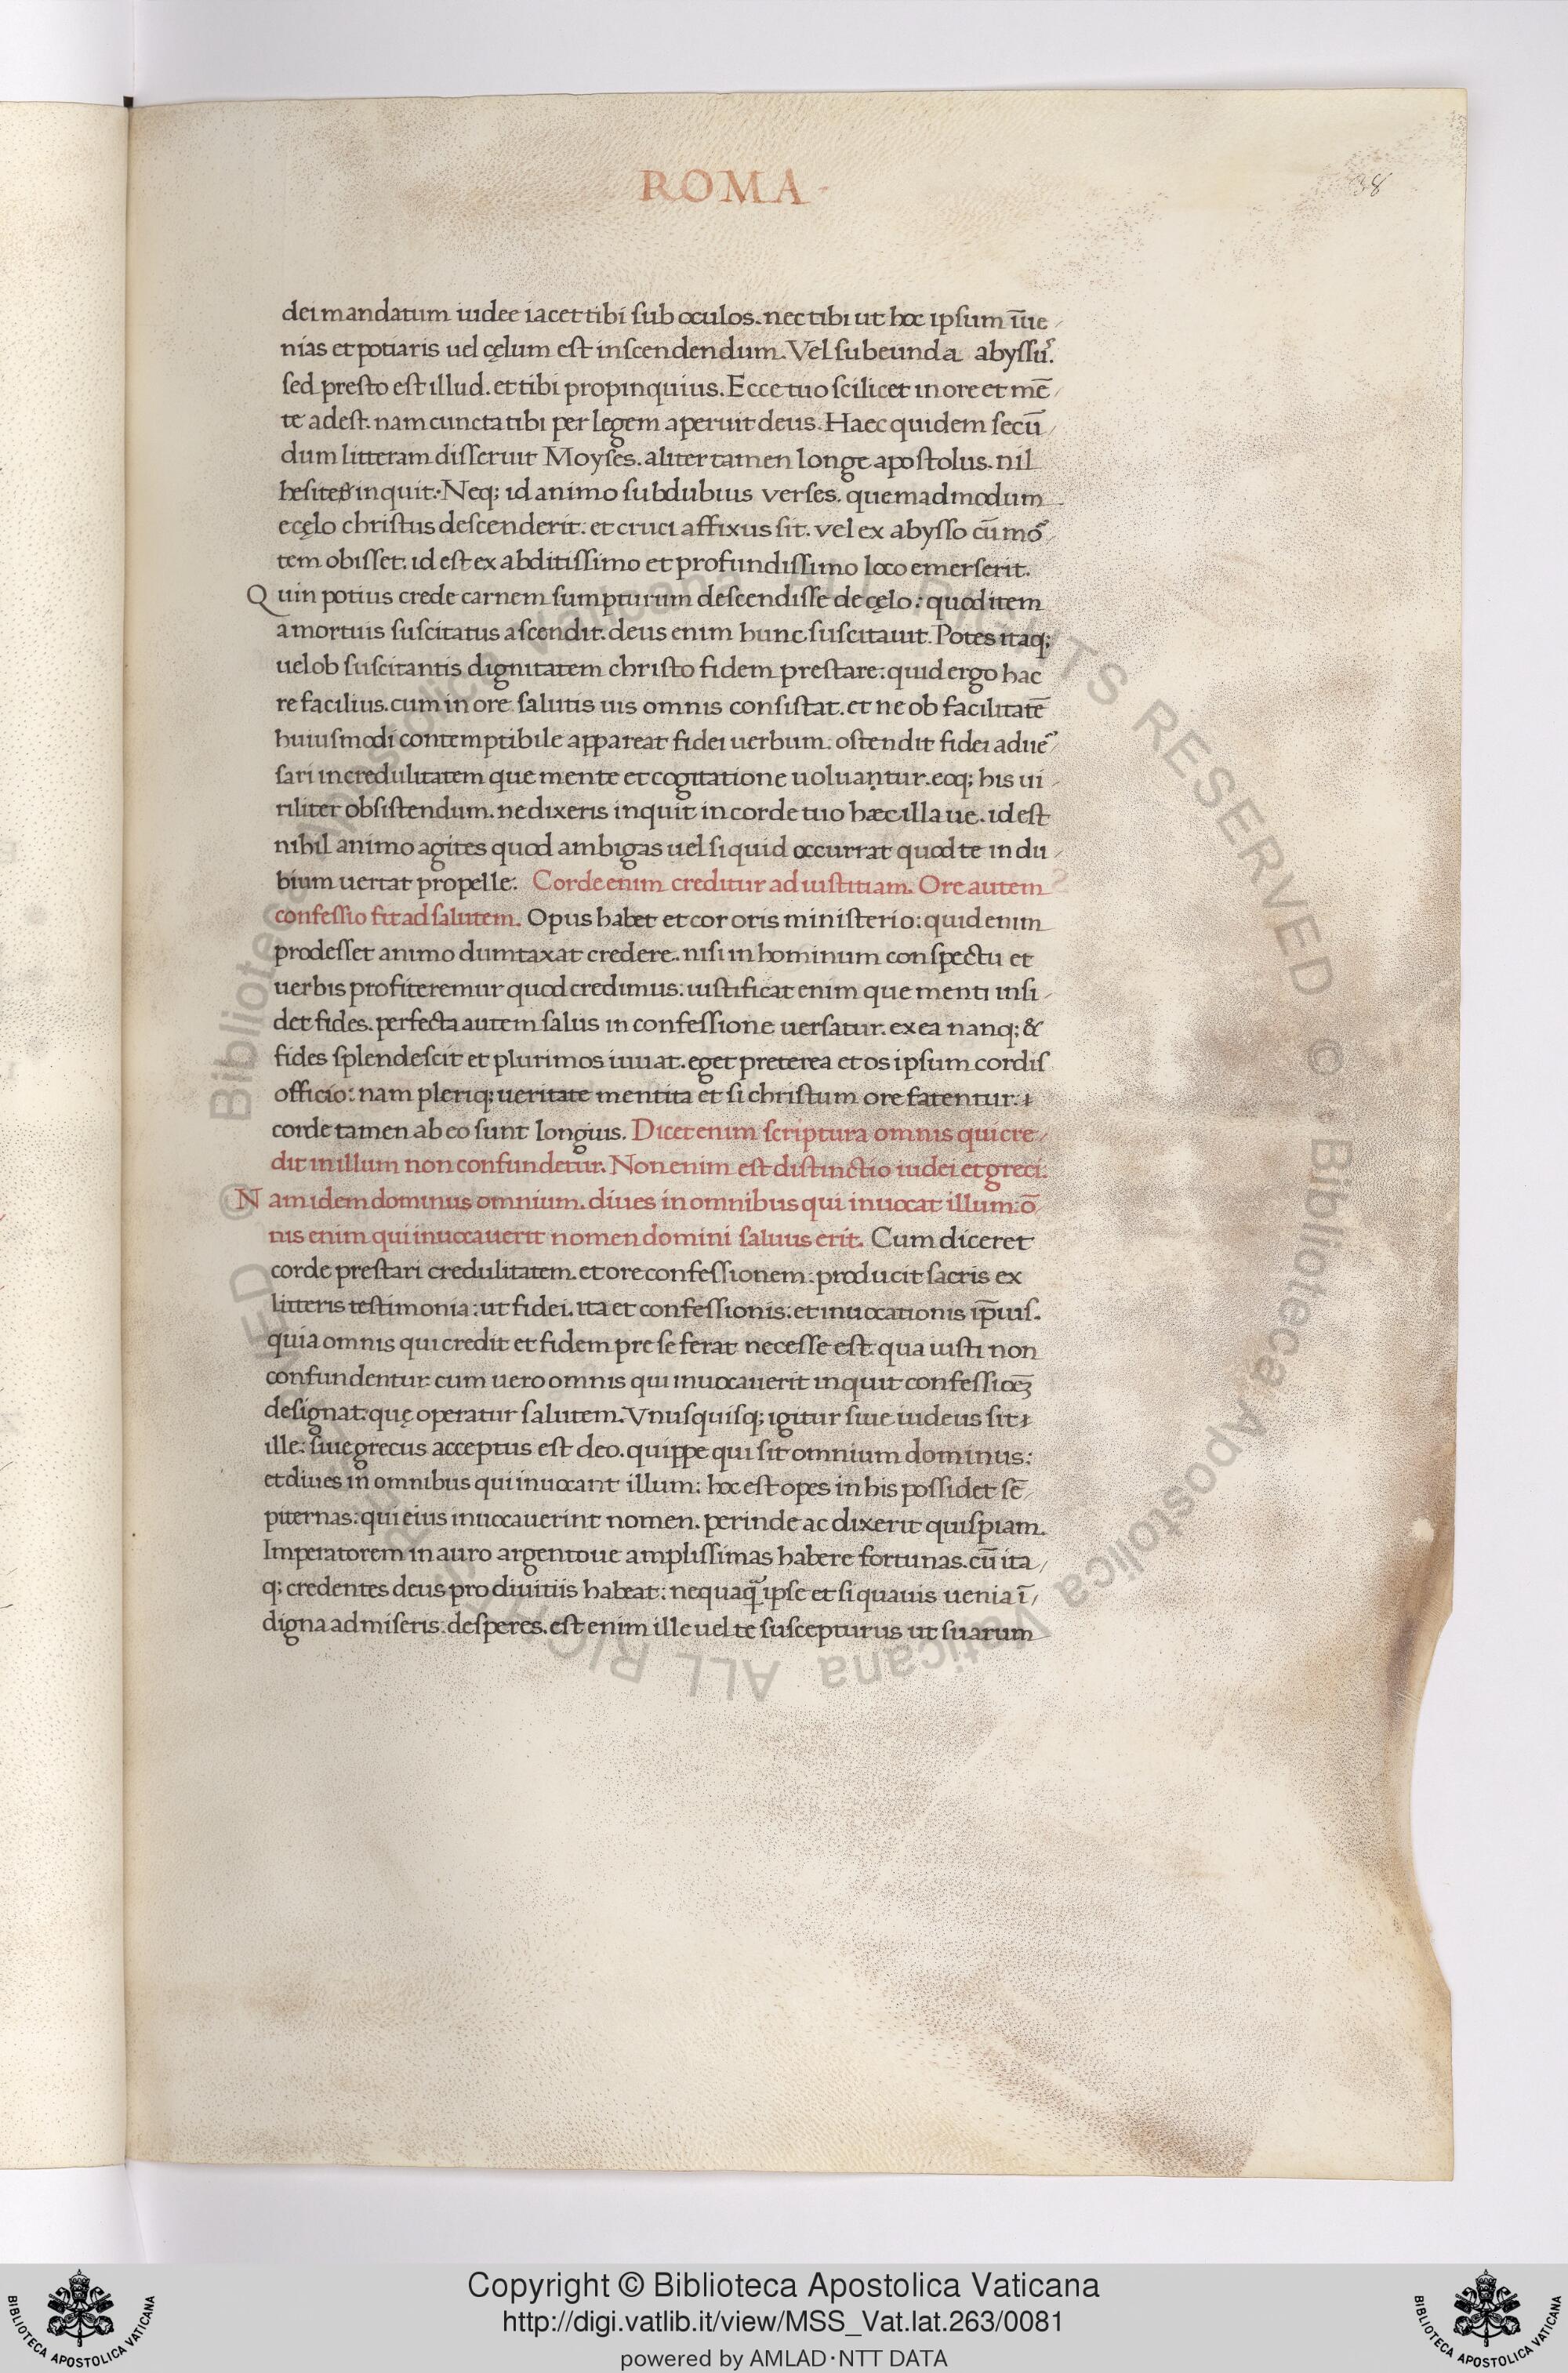 ROMA
38
dei mandatum iudee iacet tibi sub oculos. nec tibi ut hoc ipsum īue
nias et potiaris uel cęlum est inscendendum. Vel subeunda abyssū.
sed presto est illud. et tibi propinquius. Ecce tuo scilicet in ore et mē
te adest. nam cuncta tibi per legem aperuit deus. Haec quidem secū
dum litteram disseruit Moyses. aliter tamen longe apostolus. nil
hesites inquit. Neq; id animo subdubius verses. quemadmodum
e cęlo christus descenderit. et cruci affixus sit. vel ex abysso cū mo᷒
tem obisset. id est ex abditissimo et profundissimo loco emerserit.
Quin potius crede carnem sumpturum descendisse de cęlo: quod item
a mortuis suscitatus ascendit. deus enim hunc suscitauit. Potes itaq;
uel ob suscitantis dignitatem christo fidem prestare: quid ergo hac
re facilius. cum in ore salutis uis omnis consistat. et ne ob facilitatē
huiusmodi contemptibile appareat fidei uerbum. ostendit fidei adue᷒
sari incredulitatem que mente et cogitatione uoluaṇtur. eoq; his ui
riliter obsistendum. ne dixeris inquit in corde tuo hæc illa ue. id est
nihil animo agites quod ambigas uel si quid occurrat quod te in du
bium uertat propelle. Corde enim creditur ad iustitiam. Ore autem
confessio fit ad salutem. Opus habet et cor oris ministerio: quid enim
prodesset animo dumtaxat credere. nisi in hominum conspectu et
uerbis profiteremur quod credimus: iustificat enim que menti insi
det fides. perfecta autem salus in confessione uersatur. ex ea nanq; &
fides splendescit et plurimos iuuat. eget preterea et os ipsum cordis
officio: nam pleriq; ueritate mentita et si christum ore fatentur.
corde tamen ab eo sunt longius. Dicet enim scriptura omnis qui cre
dit in illum non confundetur. Non enim est distinctio iudei et greci.
Nam idem dominus omnium. diues in omnibus qui inuocat illum: ō
nis enim qui inuocauerit nomen domini saluus erit. Cum diceret
corde prestari credulitatem. et ore confessionem: producit sacris ex
litteris testimonia: ut fidei. ita et confessionis: et inuocationis ip̄ius.
quia omnis qui credit et fidem pre se ferat necesse est: qua iusti non
confundentur: cum uero omnis qui inuocauerit inquit confessioēȝ
designat: quę operatur salutem. Vnusquisq; igitur siue iudeus sit
ille: siue grecus acceptus est deo. quippe qui sit omnium dominus:
et diues in omnibus qui inuocant illum: hoc est opes in his possidet sē
piternas: qui eius inuocauerint nomen. perinde ac dixerit quispiam.
Imperatorem in auro argentoue amplissimas habere fortunas. cū ita
q; credentes deus pro diuitiis habeat: nequaq̄ ipse et si quauis uenia ī
digna admiseris. desperes. est enim ille uel te suscepturus ut suarum
Copyright © Biblioteca Apostolica Vaticana
http://digi.vatlib.it/view/MSS_Vat.lat.263/0081
powered by AMLAD·NTT DATA
BIBLIOTECA APOSTOLICA VATICANA
BIBLIOTECA APOSTOLICA VATICANA
© Biblioteca Apostolica Vaticana ALL RIGHTS RESERVED
© Biblioteca Apostolica Vaticana ALL RIGHTS RESERVED